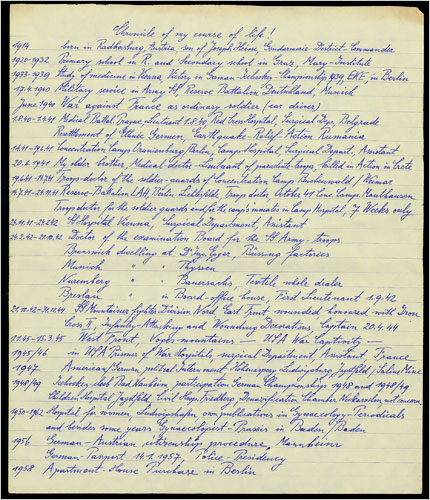 Chronicle of my course of life!
1914 born in Radkersburg, Austria, son of Joseph Heim, Gendarmerie-District-Commander
1920-1932 Primary school in R. and Secondary school in Graz, Mary-Institute
1933-1939 Study of medicine in Vienna, Victory in German-Icehockey-Championship 1939, EKE in Berlin
17.4.1940 Military service in Army SS Reserve Battalion "Deutschland", Munich
June 1940 War against France as ordinary soldier (car driver)
1.8.40-1.4.41 Medical Battal. Prague, Lieutenant 1.8.40, Red Cross Hospital, Surgical Dep. Belgrade
Resettlement of Ethnic German, Earthquake-Relief Action Rumania
Concentration Camp Oranienburg/Berlin, Camps Hospital, Surgical Depart. Assistant
20.6.1941 My older brother, Medical doctor-Lieutenant of parachute troops, killed in Action in Crete
Troops-doctor of the soldier-guards of Concentration Camp Buchenwald/Weimar
Reserve-Battalion LAH, Berlin Lichterfelde, Troops doctor, October 41 Conc. Camp Mauthausen
Troops doctor for the soldier guards and for the camp's inmates in Camp Hospital, 7 Weeks only
SS Hospital Vienna, Surgical Department, Assistant
24.2.42-21.10.42 Doctor of the examination Board for the SS Army-troops
Brunswick dwelling at D. Ing. Egger, Büssing factories
Munich " " Thyssen
Nuremberg " " Bauersachs, Textile whole dealer
Breslau " in Board-office house, First Lieutenant 1.9.42
SS Mountaineer fighter Division Nord East Front wounded honored with Iron
Cross II, Infantry-Attacking and Wounding Decorations, Captain 20.4.44
1.1.45-15.3.45 West Front, Voges-mountains - USA War Captivity -
1945/46 in USA Prisoner of War Hospitals, surgical Department, Assistant, France
1947 American/German political Internment Hohenasperg Ludwigsburg, Jagstfeld/Salines Mine
1948/49 Icehockey club Bad Nauheim, participation German Championships 1948 and 1948/49
Children Hospital Jagstfeld, Civil Hosp. Friedberg, Denazification Chamber Neckarsulm not concern.
1950-1962 Hospital for women Ludwigshafen own publications in Gynaecology-Periodicals
and besides some years Gynaecologist-Praxis in Baden/Baden
1956 German-Austrian citizenship procedure, Mannheim
German-Passport 14.1.1957, Police-Presidency
1958 Apartment-House Purchase in Berlin